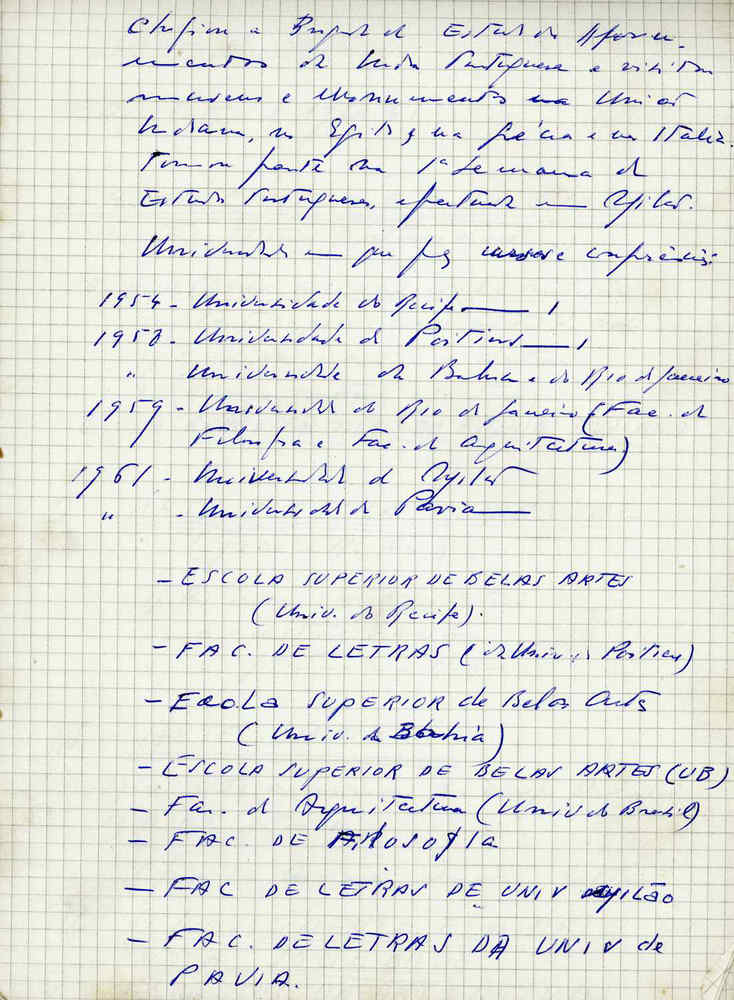 Chefiou a Brigada de Estudo dos Monu-
mentos da India Portuguesa e visitou
museus e monumentos na União
Indiana, no Egito, na Grécia e na Itália.
Tomou parte na 1ª Semana de
Estudos Portugueses, efectuada em Milão.
Universidades em que fez cursos e conferências:
1954 - Universidade do Recife — 1
1958 - Universidade de Poitiers — 1
" Universidade da Bahia e do Rio de Janeiro
1959 - Universidade do Rio de Janeiro (Fac. de
Filosofia e Fac. de Arquitectura)
1961 - Universidade de Milão
" - Universidade de Pavia —
- ESCOLA SUPERIOR DE BELAS ARTES
(Univ. do Recife).
- FAC. DE LETRAS (da Univ. de Poitiers)
- Escola SUPERIOR de Belas Artes
(Univ. da Bahia)
- ESCOLA SUPERIOR DE BELAS ARTES (UB)
- Fac. de Arquitectura (Univ do Brasil)
- FAC. DE Filosofia
- FAC DE LETRAS DE UNIV Milão
- FAC. DE LETRAS DA UNIV de
PAVIA.